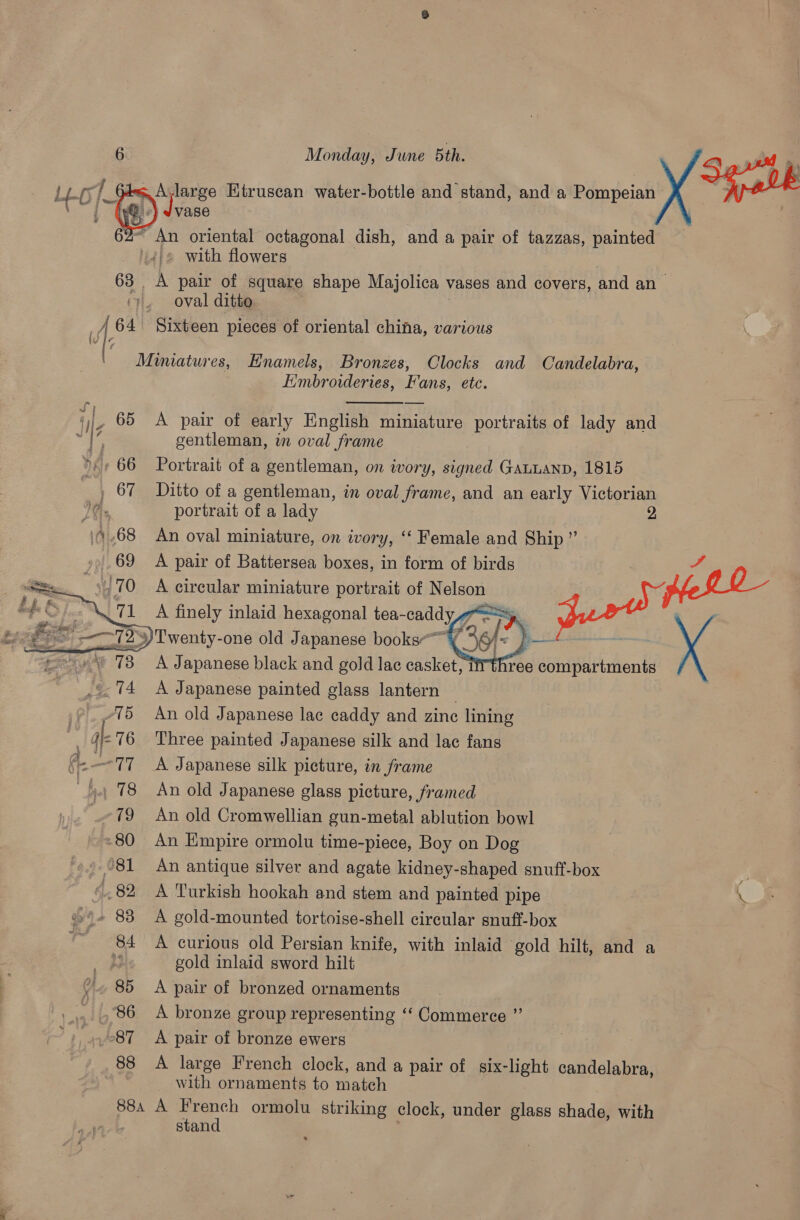 6 Monday, June 5th.
61 A large Etruscan water-bottle and stand, and a Pompeian
vase
62 An oriental octagonal dish, and a pair of tazzas, painted
with flowers
63 A pair of square shape Majolica vases and covers, and an
oval ditto
64 Sixteen pieces of oriental china, various
Miniatures, Enamels, Bronzes, Clocks and Candelabra,
Embroideries, Fans, etc.
65 A pair of early English miniature portraits of lady and
gentleman, in oval frame
66 Portrait of a gentleman, on ivory, signed GALLAND, 1815
67 Ditto of a gentleman, in oval frame, and an early Victorian
portrait of a lady 2
68 An oval miniature, on ivory, “Female and Ship”
69 A pair of Battersea boxes, in form of birds
70 A circular miniature portrait of Nelson
71 A finely inlaid hexagonal tea-caddy
72 Twenty-one old Japanese books 36/-
73 A Japanese black and gold lac casket, in three compartments
74 A Japanese painted glass lantern
75 An old Japanese lac caddy and zinc lining
76 Three painted Japanese silk and lac fans
77 A Japanese silk picture, in frame
78 An old Japanese glass picture, framed
79 An old Cromwellian gun-metal ablution bowl
80 An Empire ormolu time-piece, Boy on Dog
81 An antique silver and agate kidney-shaped snuff-box
82 A Turkish hookah and stem and painted pipe
83 A gold-mounted tortoise-shell circular snuff-box
84 A curious old Persian knife, with inlaid gold hilt, and a
gold inlaid sword hilt
85 A pair of bronzed ornaments
86 A bronze group representing “Commerce”
87 A pair of bronze ewers
88 A large French clock, and a pair of six-light candelabra,
with ornaments to match
88A A French ormolu striking clock, under glass shade, with
stand